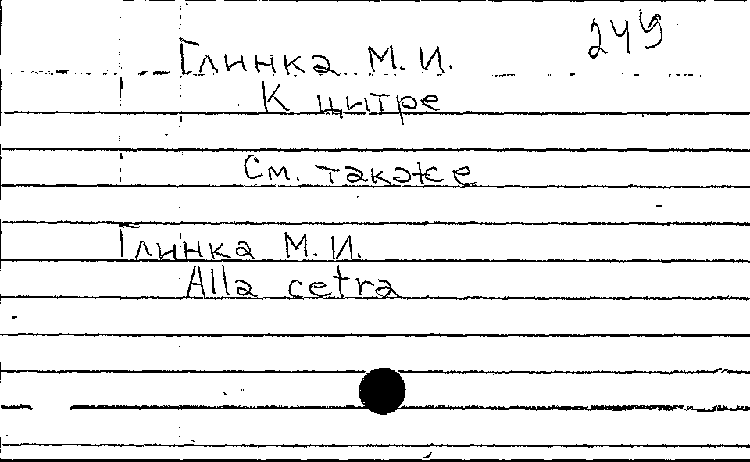 249
Глинка М. И.
К цитре
См. также
Глинка М. И.
Alla cetra